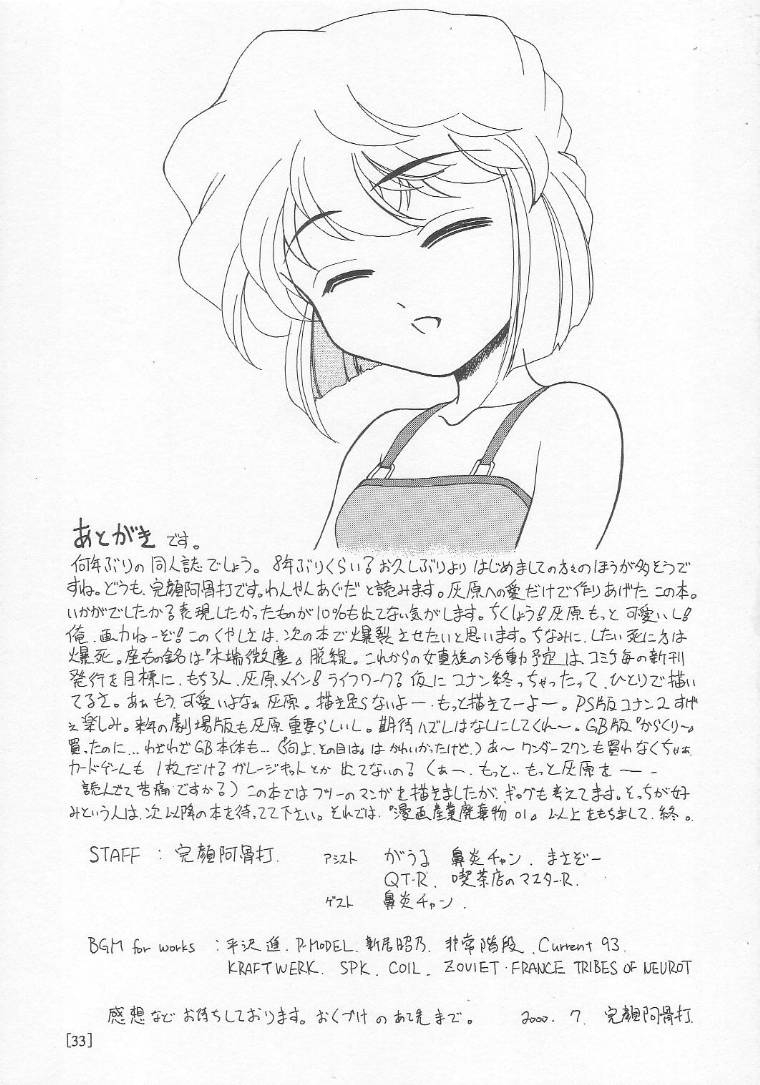 あとがき です。
何年ぶりの同人誌でしょう。8年ぶりくらい？お久しぶりより はじめましての方々のほうが多そうで
すね。どうも、完顔阿骨打です。わんやんあぐだと読みます。灰原への愛だけで作りあげた この本。
いかがでしたか？表現したかったものが10%も出てない気がします。ちくしょう！灰原もっと 可愛いし！
俺、画力ねーぞ！このくやしさは、次の本で爆裂させたいと思います。ちなみに、したい死に方は
爆死。座右の銘は『木端微塵』。脱線。これからの女真族の活動予定は、コミケ毎の新刊
発行を目標に、もちろん、灰原メイン！ライフワーク？仮に コナン終っちゃったって、ひとりで描い
てるさ。あぁもう、可愛いよなぁ 灰原。描き足らないよー、もっと描きてーよー。PS版コナン2 すげ
え楽しみ。来年の劇場版も灰原重要らしいし。期待ハズレはなしにしてくれ〜。GB版『からくり〜』
買ったのに…わざわざGB本体も…(『何よ、その目は』は かわいかったけど。) あ〜 ワンダースワンも買わなくちゃぁ
カードゲームも 1枚だけ？ガレージキットとか 出てないの？(あー、もっと、もっと灰原をーー
読んでて苦痛ですか？) この本ではフツーのマンガを描きましたが、ギャグも考えてます。そっちが好
みという人は、次以降の本を待ってて下さい。それでは、『漫画産業廃棄物01』以上をもちまして、終。
STAFF : 完顔阿骨打. アシスト がうる 鼻炎チャン. まさぞー
QT-R. 喫茶店のマスターR.
ゲスト 鼻炎チャン.
BGM for works : 平沢進. P-MODEL. 新居昭乃. 非常階段. Current 93.
KRAFTWERK. SPK. COIL. ZOVIET・FRANCE TRIBES OF NEUROT
感想など お待ちしております。おくづけ の あて先まで。 2000. 7. 完顔阿骨打.
[33]